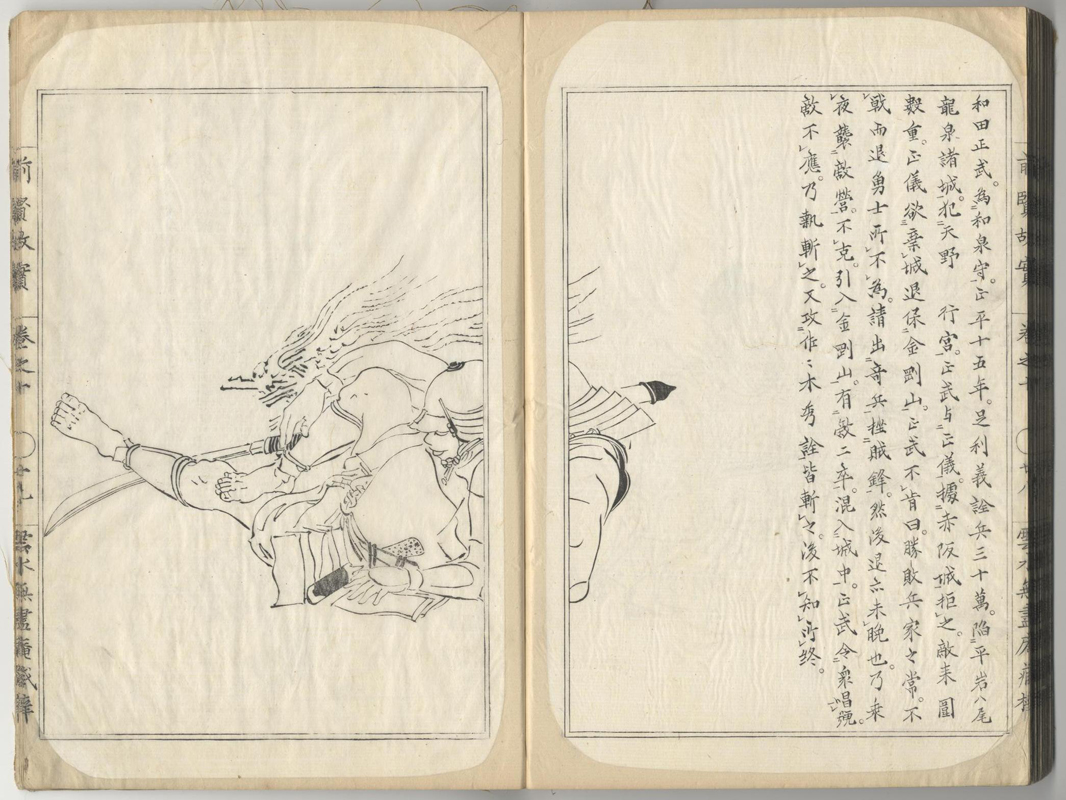 和田正武。為和泉守。正平十五年。足利義詮兵三十萬。陷平岩八尾
龍泉諸城。犯天野 行宮。正武与正儀。據赤阪城拒之。敵來圍
數重。正儀欲棄城退保金剛山。正武不肯曰。勝敗兵家之常。不
戰而退勇士所不為。請出奇兵挫賊鋒。然後退亦未晚也。乃乘
夜襲敵營。不克。引入金剛山。有敵二卒。混入城中。正武令衆唱號。
敵不應。乃執斬之。又攻佐々木秀詮皆斬之。後不知所終。
前賢故實 卷之十 廿八
前賢故實 卷之十 廿九